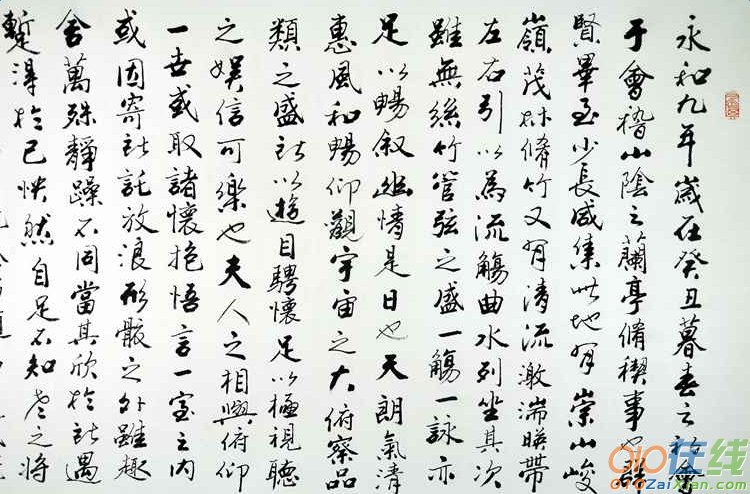 永和九年歲在癸丑暮春之初會
于會稽山陰之蘭亭脩禊事也群
賢畢至少長咸集此地有崇山峻
嶺茂林脩竹又有清流激湍暎帶
左右引以為流觴曲水列坐其次
雖無絲竹管弦之盛一觴一詠亦
足以暢敘幽情是日也天朗氣清
惠風和暢仰觀宇宙之大俯察品
類之盛所以遊目騁懷足以極視聽
之娛信可樂也夫人之相與俯仰
一世或取諸懷抱悟言一室之內
或因寄所託放浪形骸之外雖趣
舍萬殊靜躁不同當其欣於所遇
蹔得於己怏然自足不知老之將
010在线
010ZaiXian.com